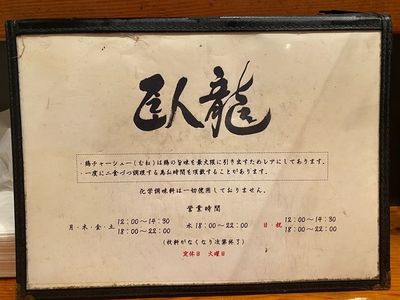 臥龍
・鶏チャーシュー(むね)は鶏の旨味を最大限に引き出すためレアにしてあります。
・一度に二食づつ調理する為お時間を頂戴することがあります。
化学調味料は一切使用しておりません。
営業時間
月・木・金・土 12:00〜14:30 18:00〜22:00 水 18:00〜22:00 日 祝 12:00〜14:30 18:00〜22:00
(材料がなくなり次第終了)
定休日 火曜日